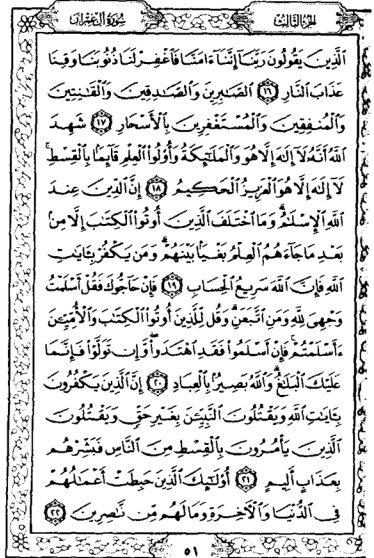 سورة آل عمران
الجزء الثالث
الَّذِينَ يَقُولُونَ رَبَّنَا إِنَّنَا ءَامَنَّا فَاغْفِرْ لَنَا ذُنُوبَنَا وَقِنَا
عَذَابَ النَّارِ ١٦ الصَّابِرِينَ وَالصَّادِقِينَ وَالْقَانِتِينَ
وَالْمُنفِقِينَ وَالْمُسْتَغْفِرِينَ بِالْأَسْحَارِ ١٧ شَهِدَ
اللَّهُ أَنَّهُ لَا إِلَٰهَ إِلَّا هُوَ وَالْمَلَائِكَةُ وَأُولُوا الْعِلْمِ قَائِمًا بِالْقِسْطِ
لَا إِلَٰهَ إِلَّا هُوَ الْعَزِيزُ الْحَكِيمُ ١٨ إِنَّ الدِّينَ عِندَ
اللَّهِ الْإِسْلَامُ وَمَا اخْتَلَفَ الَّذِينَ أُوتُوا الْكِتَابَ إِلَّا مِنْ
بَعْدِ مَا جَاءَهُمُ الْعِلْمُ بَغْيًا بَيْنَهُمْ وَمَن يَكْفُرْ بِآيَاتِ
اللَّهِ فَإِنَّ اللَّهَ سَرِيعُ الْحِسَابِ ١٩ فَإِنْ حَاجُّوكَ فَقُلْ أَسْلَمْتُ
وَجْهِيَ لِلَّهِ وَمَنِ اتَّبَعَنِ وَقُل لِّلَّذِينَ أُوتُوا الْكِتَابَ وَالْأُمِّيِّينَ
ءَأَسْلَمْتُمْ فَإِنْ أَسْلَمُوا فَقَدِ اهْتَدَوا وَّإِن تَوَلَّوْا فَإِنَّمَا
عَلَيْكَ الْبَلَاغُ وَاللَّهُ بَصِيرٌ بِالْعِبَادِ ٢٠ إِنَّ الَّذِينَ يَكْفُرُونَ
بِآيَاتِ اللَّهِ وَيَقْتُلُونَ النَّبِيِّينَ بِغَيْرِ حَقٍّ وَيَقْتُلُونَ
الَّذِينَ يَأْمُرُونَ بِالْقِسْطِ مِنَ النَّاسِ فَبَشِّرْهُم
بِعَذَابٍ أَلِيمٍ ٢١ أُولَٰئِكَ الَّذِينَ حَبِطَتْ أَعْمَالُهُمْ
فِي الدُّنْيَا وَالْآخِرَةِ وَمَا لَهُم مِّن نَّاصِرِينَ ٢٢
٥١